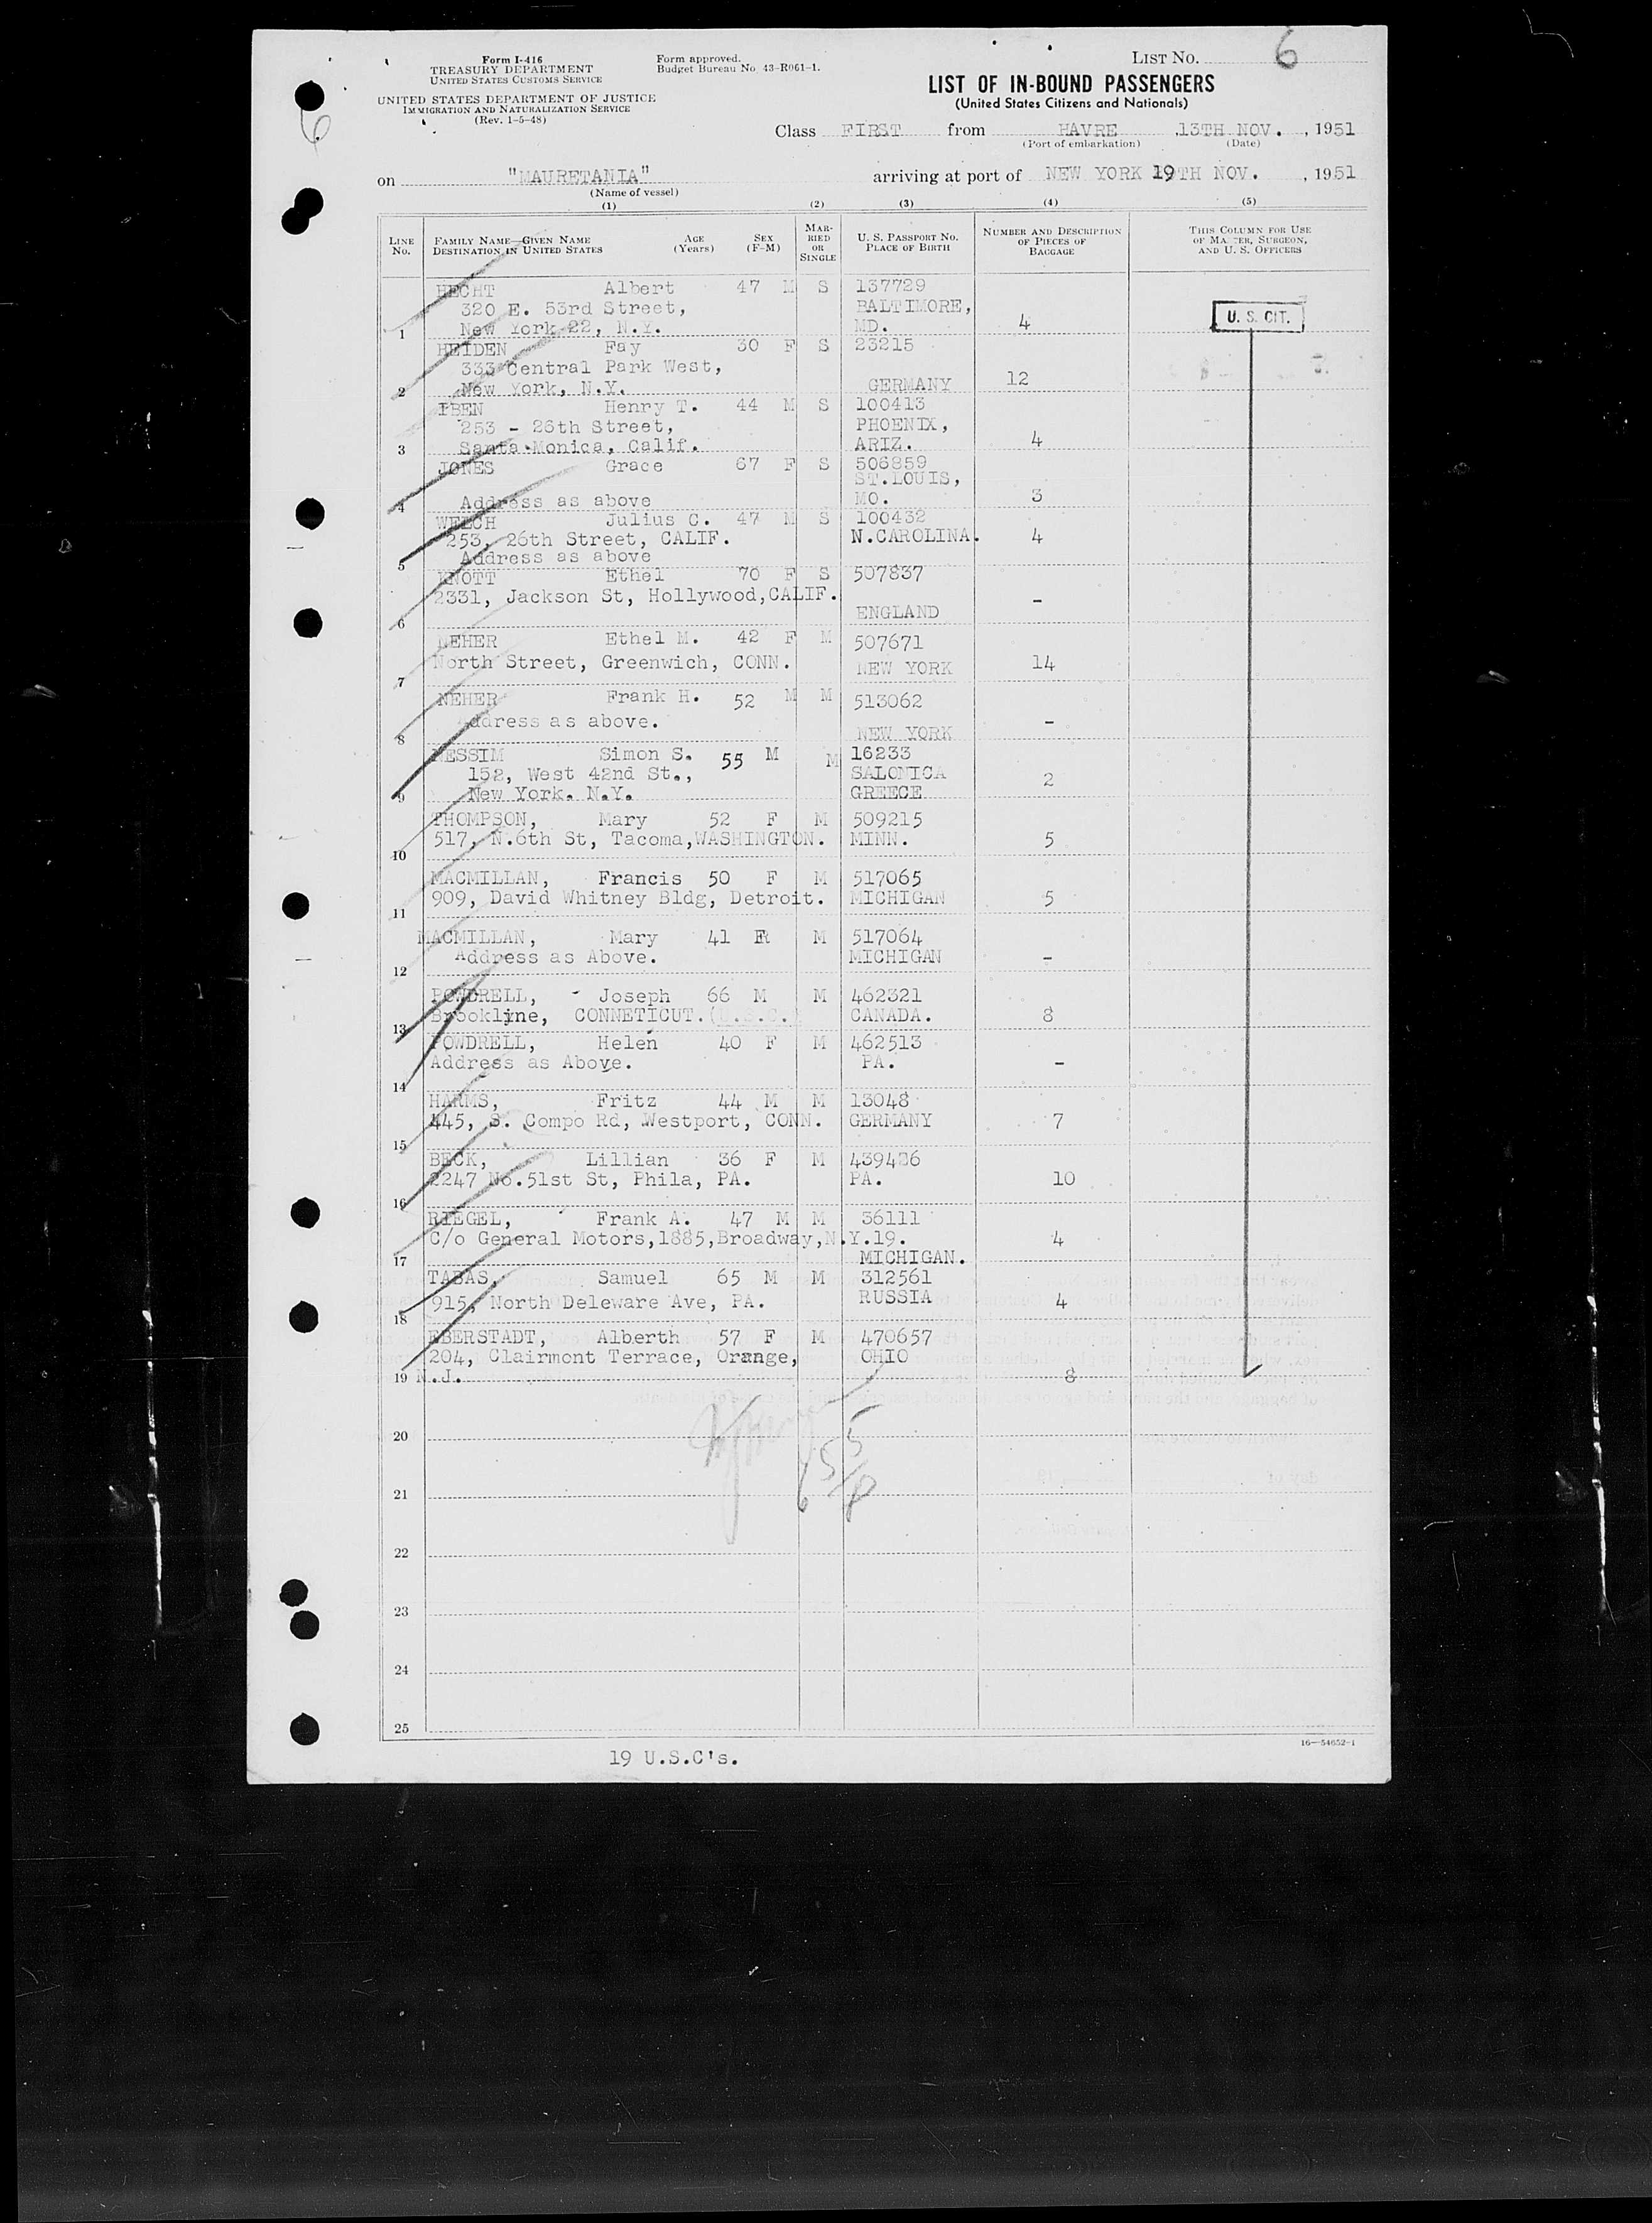 Form I-416
TREASURY DEPARTMENT
UNITED STATES CUSTOMS SERVICE
UNITED STATES DEPARTMENT OF JUSTICE
IMMIGRATION AND NATURALIZATION SERVICE
(Rev. 1-5-48)
Form approved.
Budget Bureau No. 43-R061-1.
LIST No. 6
6
LIST OF IN-BOUND PASSENGERS
(United States Citizens and Nationals)
Class FIRST from HAVRE, 13TH NOV., 1951
(Port of embarkation) (Date)
on "MAURETANIA" arriving at port of NEW YORK 19TH NOV., 1951
(Name of vessel)
(1) (2) (3) (4) (5)
LINE No. FAMILY NAME—GIVEN NAME DESTINATION IN UNITED STATES AGE (Years) SEX (F-M) MARRIED OR SINGLE U. S. PASSPORT NO. PLACE OF BIRTH NUMBER AND DESCRIPTION OF PIECES OF BAGGAGE THIS COLUMN FOR USE OF MASTER, SURGEON, AND U. S. OFFICERS
HECHT Albert 47 M S 137729
320 E. 53rd Street, BALTIMORE,
1 New York 22, N.Y. MD. 4 U. S. CIT.
HEIDEN Fay 30 F S 23215
333 Central Park West,
2 New York, N.Y. GERMANY 12
IBEN Henry T. 44 M S 100413
253 - 26th Street, PHOENIX,
3 Santa Monica, Calif. ARIZ. 4
JONES Grace 67 F S 506859
ST.LOUIS,
4 Address as above MO. 3
WELCH Julius C. 47 M S 100432
253, 26th Street, CALIF. N.CAROLINA. 4
5 Address as above
KNOTT Ethel 70 F S 507837
2331, Jackson St, Hollywood,CALIF. -
6 ENGLAND
NEHER Ethel M. 42 F M 507671
North Street, Greenwich, CONN. NEW YORK 14
7
NEHER Frank H. 52 M M 513062
Address as above. -
8 NEW YORK
NESSIM Simon S. 55 M M 16233
152, West 42nd St., SALONICA 2
9 New York. N.Y. GREECE
THOMPSON, Mary 52 F M 509215
517, N.6th St, Tacoma,WASHINGTON. MINN. 5
10
MACMILLAN, Francis 50 F M 517065
909, David Whitney Bldg, Detroit. MICHIGAN 5
11
MACMILLAN, Mary 41 F M 517064
Address as Above. MICHIGAN -
12
POWDRELL, Joseph 66 M M 462321
Brookline, CONNETICUT. (U.S.C.) CANADA. 8
13
POWDRELL, Helen 40 F M 462513
Address as Above. PA. -
14
HARMS, Fritz 44 M M 13048
445, S. Compo Rd, Westport, CONN. GERMANY 7
15
BECK, Lillian 36 F M 439426
2247 No.51st St, Phila, PA. PA. 10
16
RIEGEL, Frank A. 47 M M 36111
C/o General Motors,1885,Broadway,N.Y.19. 4
17 MICHIGAN.
TABAS, Samuel 65 M M 312561
915, North Deleware Ave, PA. RUSSIA 4
18
EBERSTADT, Alberth 57 F M 470657
204, Clairmont Terrace, Orange, OHIO
19 N.J. 8
20
21
22
23
24
25
16—54652-1
19 U.S.C's.